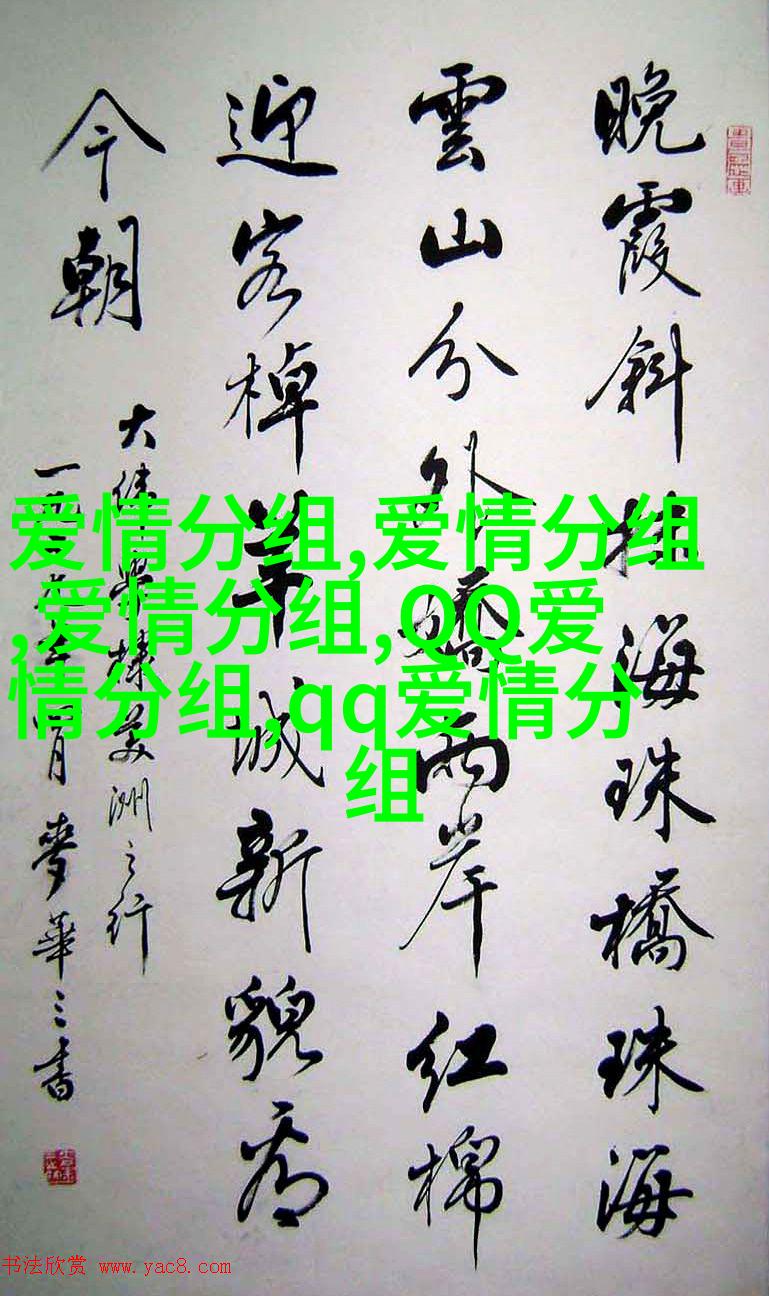 晚霞斜挂海珠橋珠海
雲山分外嬌兩岸红棉
迎客棹羊城新貌看
今朝
大緯 美洲之行
一九 年四月麥華三書
爱情分组,爱情分组
,爱情分组,QQ爱
情分组,qq爱情分
组
书法欣赏 www.yac8.com